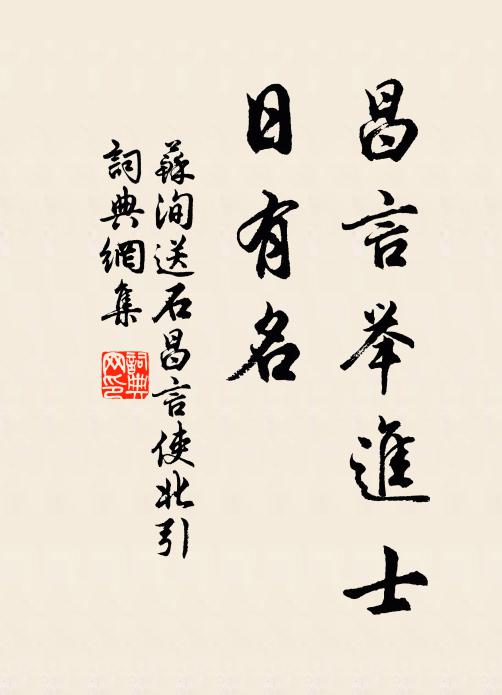 昌言举進士
日有名
蘇洵送石昌言使北引
詞典網集
詞典網印